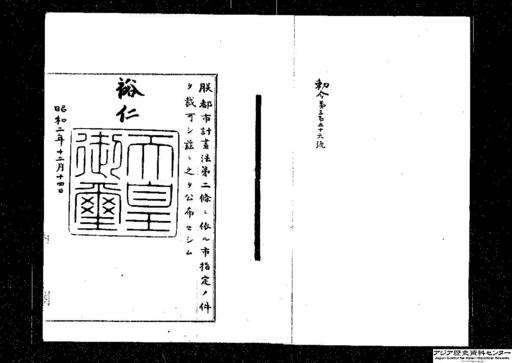 勅令第三百五十六号
朕都市計畫法第二條ニ依ル市指定ノ件
ヲ裁可シ茲ニ之ヲ公布セシム
裕仁
天皇
御璽
昭和二年十二月十四日
アジア歴史資料センター
Japan Center for Asian Historical Records